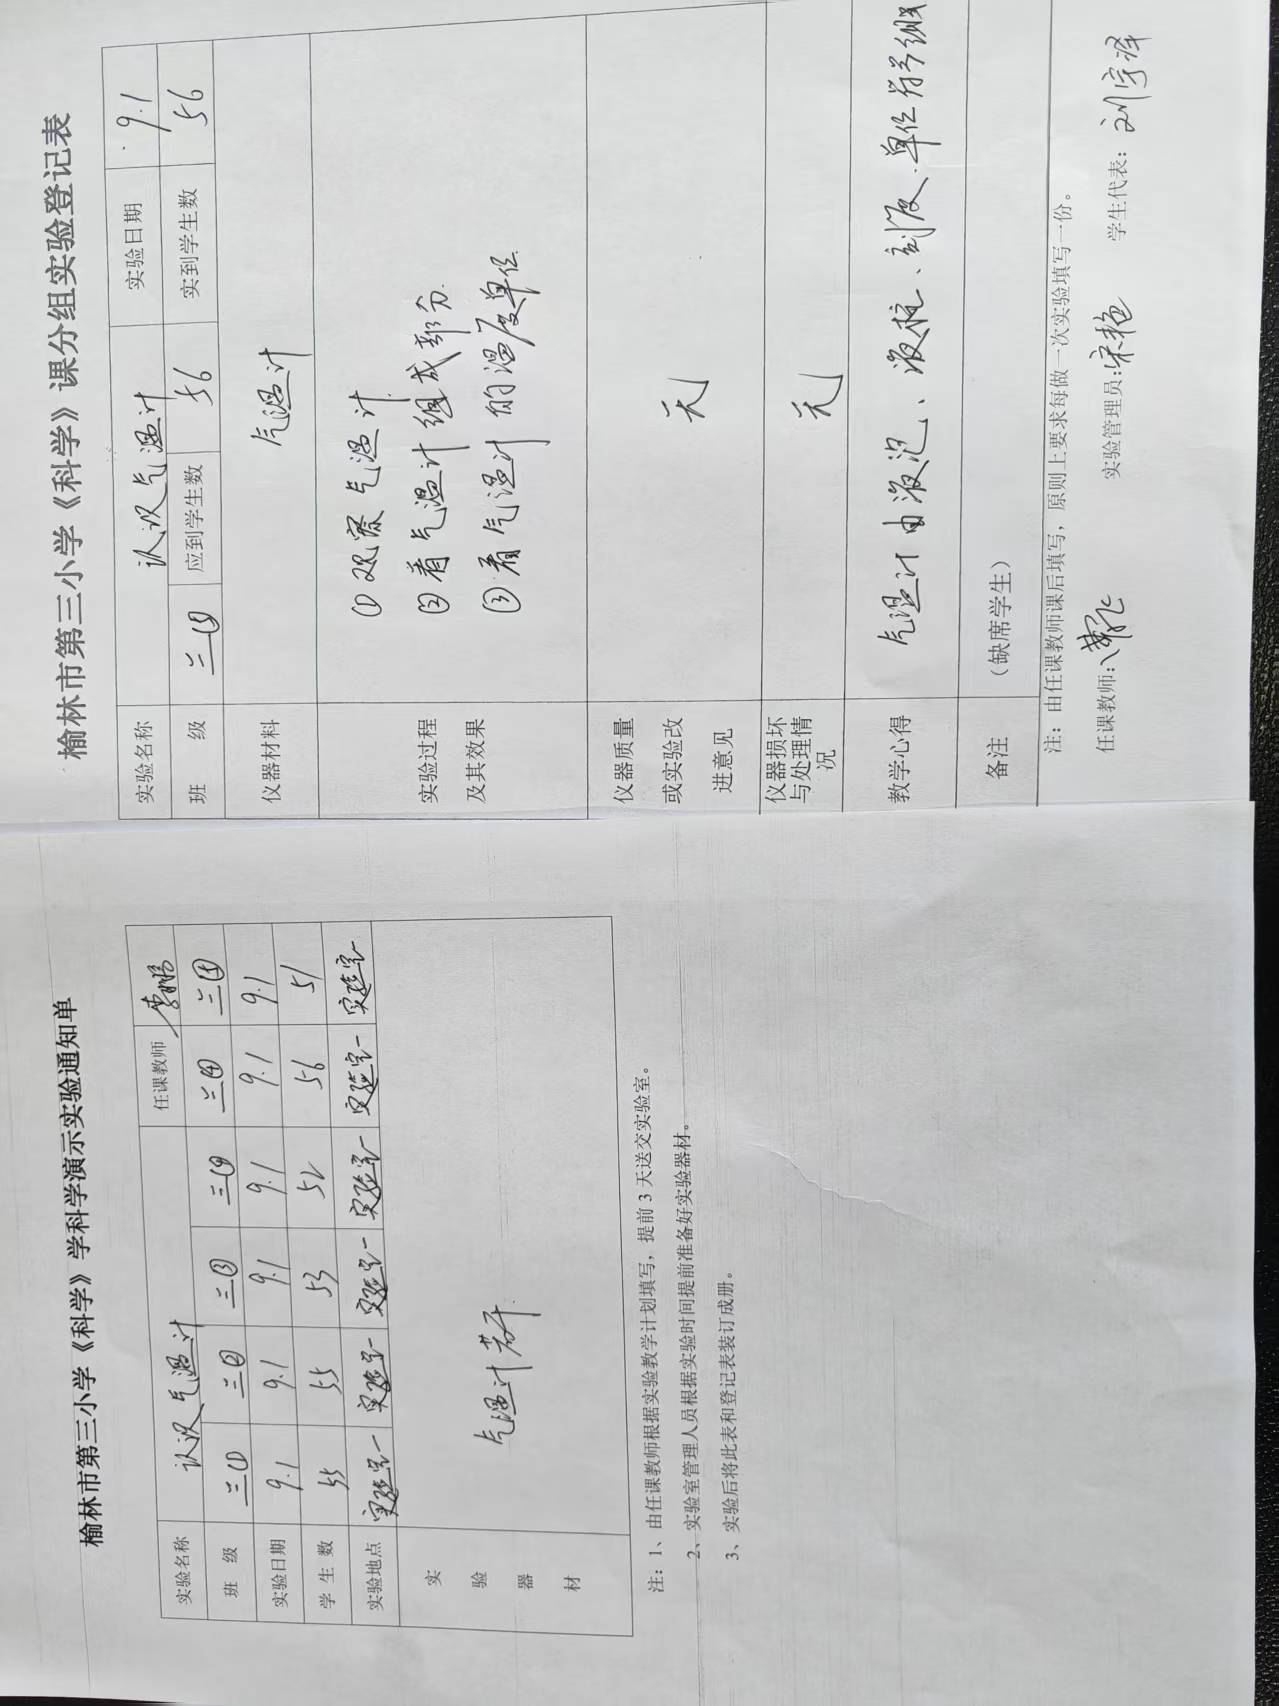 榆林市第三小学《科学》学科学演示实验通知单
实验名称 认识气温计 任课教师
班 级 三① 三② 三③ 三④
实验日期 9.1 9.1 9.1 9.1 9.1 9.1
学 生 数 55 55 53 52 56 51
实验地点 实验室一 实验室一 实验室一 实验室一 实验室一 实验室一
实验器材 气温计若干
注：1、由任课教师根据实验教学计划填写，提前 3 天送交实验室。
2、实验室管理人员根据实验时间提前准备好实验器材。
3、实验后将此表和登记表装订成册。
榆林市第三小学《科学》课分组实验登记表
实验名称 认识气温计 实验日期 9.1
班 级 应到学生数 56 实到学生数 56
仪器材料 气温计
实验过程 ①观察气温计
及其效果 ②看气温计组成部分
③看气温计的温度单位
仪器质量
或实验改 无
进意见
仪器损坏
与处理情 无
况
教学心得 气温计由液泡、液柱、刻度、单位符号组成
备注 （缺席学生）
注：由任课教师课后填写，原则上要求每做一次实验填写一份。
任课教师： 实验管理员：宋艳 学生代表：刘宇泽